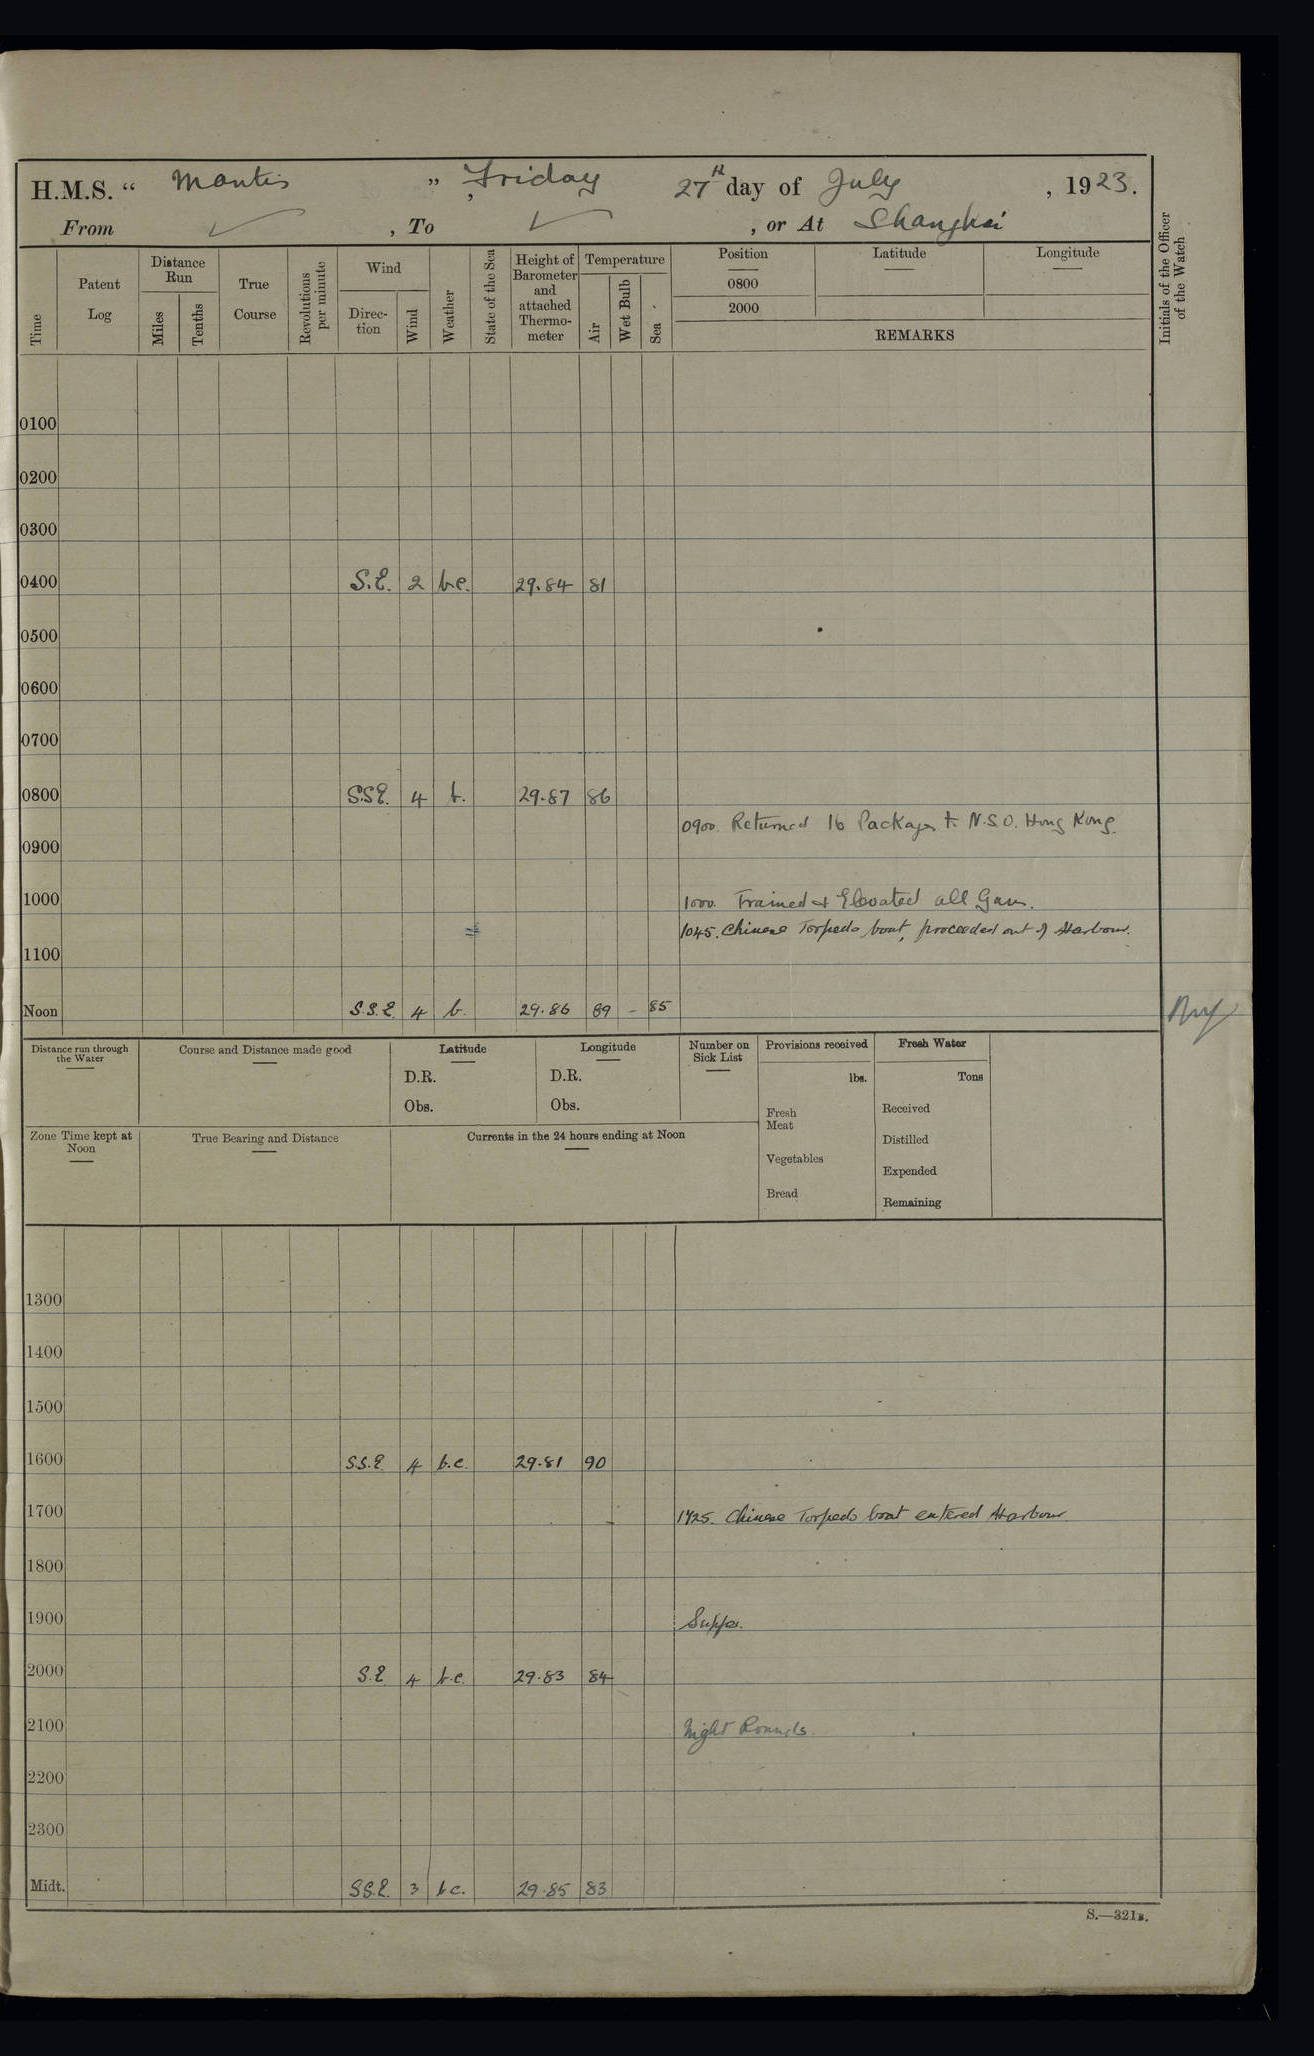 H.M.S. “ Mantis ” , Friday 27th day of July , 1923.
From ✓ , To ✓ , or At Shanghai
Time
Patent Log
Distance Run
Miles
Tenths
True Course
Revolutions per minute
Wind
Direc-tion
Wind
Weather
State of the Sea
Height of Barometer and attached Thermo-meter
Temperature
Air
Wet Bulb
Sea
Position
0800
2000
Latitude
Longitude
REMARKS
Initials of the Officer of the Watch
0100
0200
0300
0400 S.E. 2 b.c. 29.84 81
0500
0600
0700
0800 S.S.E. 4 b. 29.87 86
0900. Returned 16 Packages to N.S.O. Hong Kong.
0900
1000 1000. Trained & Elevated all Guns.
1045. Chinese Torpedo boat, proceeded out of Harbour.
1100
Noon S.S.E. 4 b. 29.86 89 - 85
Distance run through the Water
Course and Distance made good
Latitude
D.R.
Obs.
Longitude
D.R.
Obs.
Number on Sick List
Provisions received
lbs.
Fresh Meat
Vegetables
Bread
Fresh Water
Tons
Received
Distilled
Expended
Remaining
Zone Time kept at Noon
True Bearing and Distance
Currents in the 24 hours ending at Noon
1300
1400
1500
1600 S.S.E. 4 b.c. 29.81 90
1700 1725. Chinese Torpedo boat entered Harbour.
1800
1900 Supper.
2000 S.E. 4 b.c. 29.83 84
2100 Night Rounds.
2200
2300
Midt. S.S.E. 3 b.c. 29.85 83
S.—321B.